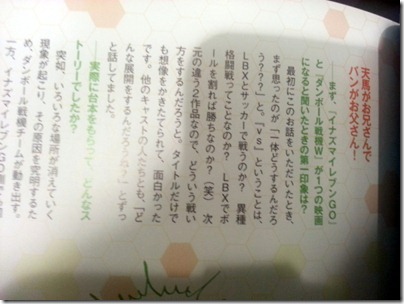 天馬がお兄さんで
バンがお父さん！
──まず、『イナズマイレブンGO』
と『ダンボール戦機W』が1つの映画
になると聞いたときの第一印象は？
最初にこのお話をいただいたとき、
まず思ったのが「一体どうするんだろ
う？？？」と。「vs」ということは、
LBXとサッカーで戦うのか？　異種
格闘戦ってことなのか？　LBXでボ
ールを割れば勝ちなのか？（笑）　次
元の違う2作品なので、どういう戦い
方をするんだろうと。タイトルだけで
も想像をかきたてられて、面白かった
です。他のキャストの人たちとも、「ど
んな展開をするんだろうね？」とずっ
と話してました。
──実際に台本をもらって、どんなス
トーリーでしたか？
突如、いろいろな場所が消えていく
現象が起こり、その原因を究明するた
め、ダンボール戦機チームが動き出す。
一方、イナズマイレブンGO